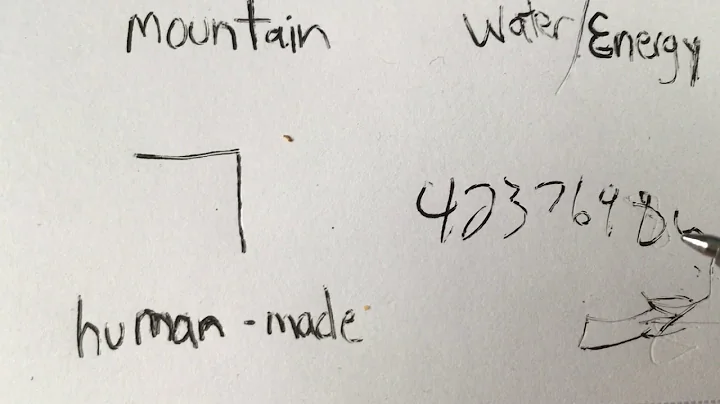 Mountain
Water/Energy
42376986
human-made